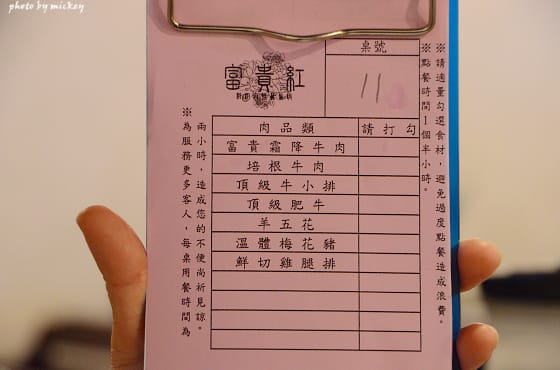 photo by mickey
富貴紅
桌號
11
肉品類 請打勾
富貴霜降牛肉
培根牛肉
頂級牛小排
頂級肥牛
羊五花
溫體梅花豬
鮮切雞腿排
※請適量勾選食材,避免過度點餐造成浪費。
※點餐時間1個半小時。
※為服務更多客人,每桌用餐時間為
兩小時,造成您的不便尚祈見諒。